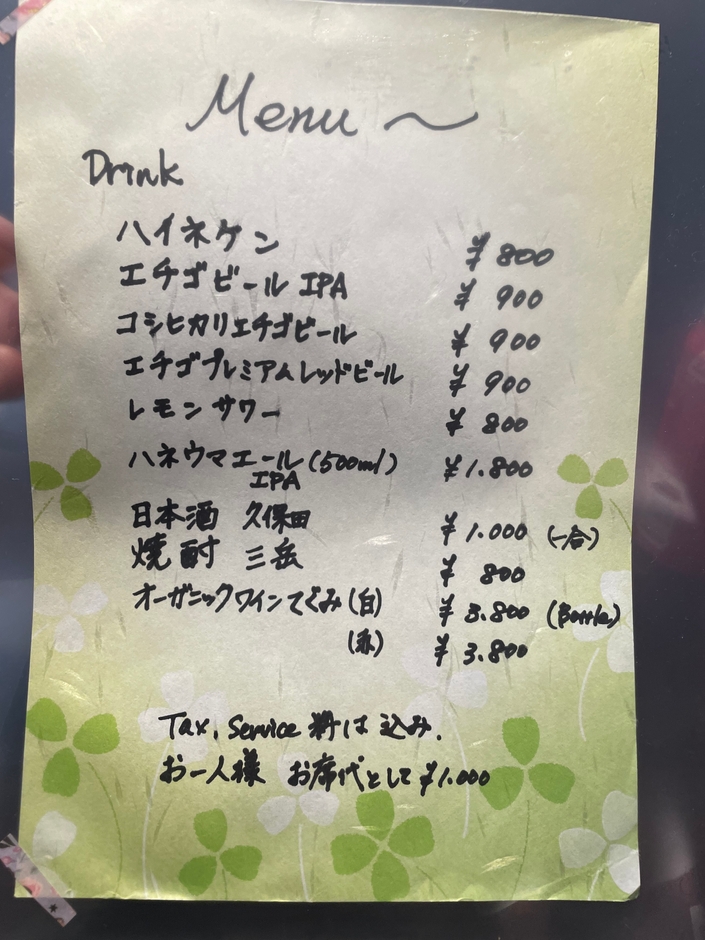 Menu ～
Drink
ハイネケン ¥800
エチゴビール IPA ¥900
コシヒカリエチゴビール ¥900
エチゴプレミアムレッドビール ¥900
レモンサワー ¥800
ハネウマエール(500ml) ¥1.800
IPA
日本酒 久保田 ¥1.000 (一合)
焼酎 三岳 ¥800
オーガニックワインてぐみ(白) ¥3.800 (Bottle)
(赤) ¥3.800
Tax, Service 料は込み.
お一人様 お席代として¥1.000